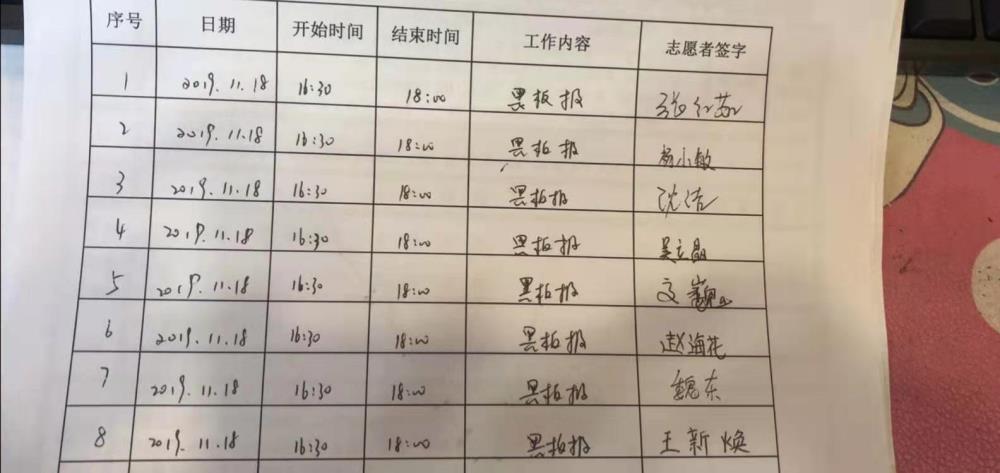 序号 日期 开始时间 结束时间 工作内容 志愿者签字
1 2019.11.18 16:30 18:00 黑板报
2 2019.11.18 16:30 18:00 黑板报 小敏
3 2019.11.18 16:30 18:00 黑板报 沈洁
4 2019.11.18 16:30 18:00 黑板报
5 2019.11.18 16:30 18:00 黑板报 文
6 2019.11.18 16:30 18:00 黑板报 赵海花
7 2019.11.18 16:30 18:00 黑板报 魏东
8 2019.11.18 16:30 18:00 黑板报 王新焕